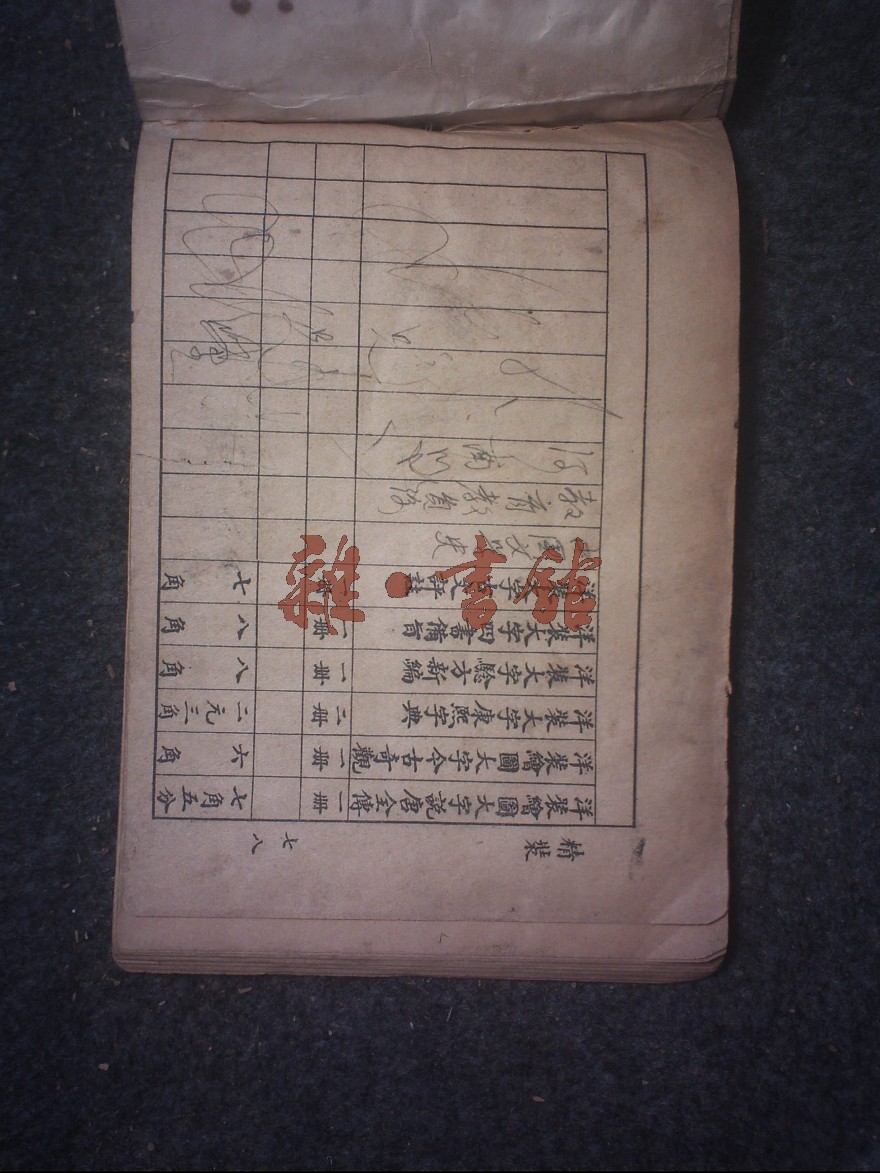 精裝 七八
洋裝繪圖大字說唐全傳 一册 七角五分
洋裝繪圖大字今古奇觀 一册 六角
洋裝大字康熙字典 二册 二元三角
洋裝大字驗方新編 一册 八角
洋裝大字四書備旨 一册 八角
洋裝大字文評註 一册 七角
河南
雜·書館